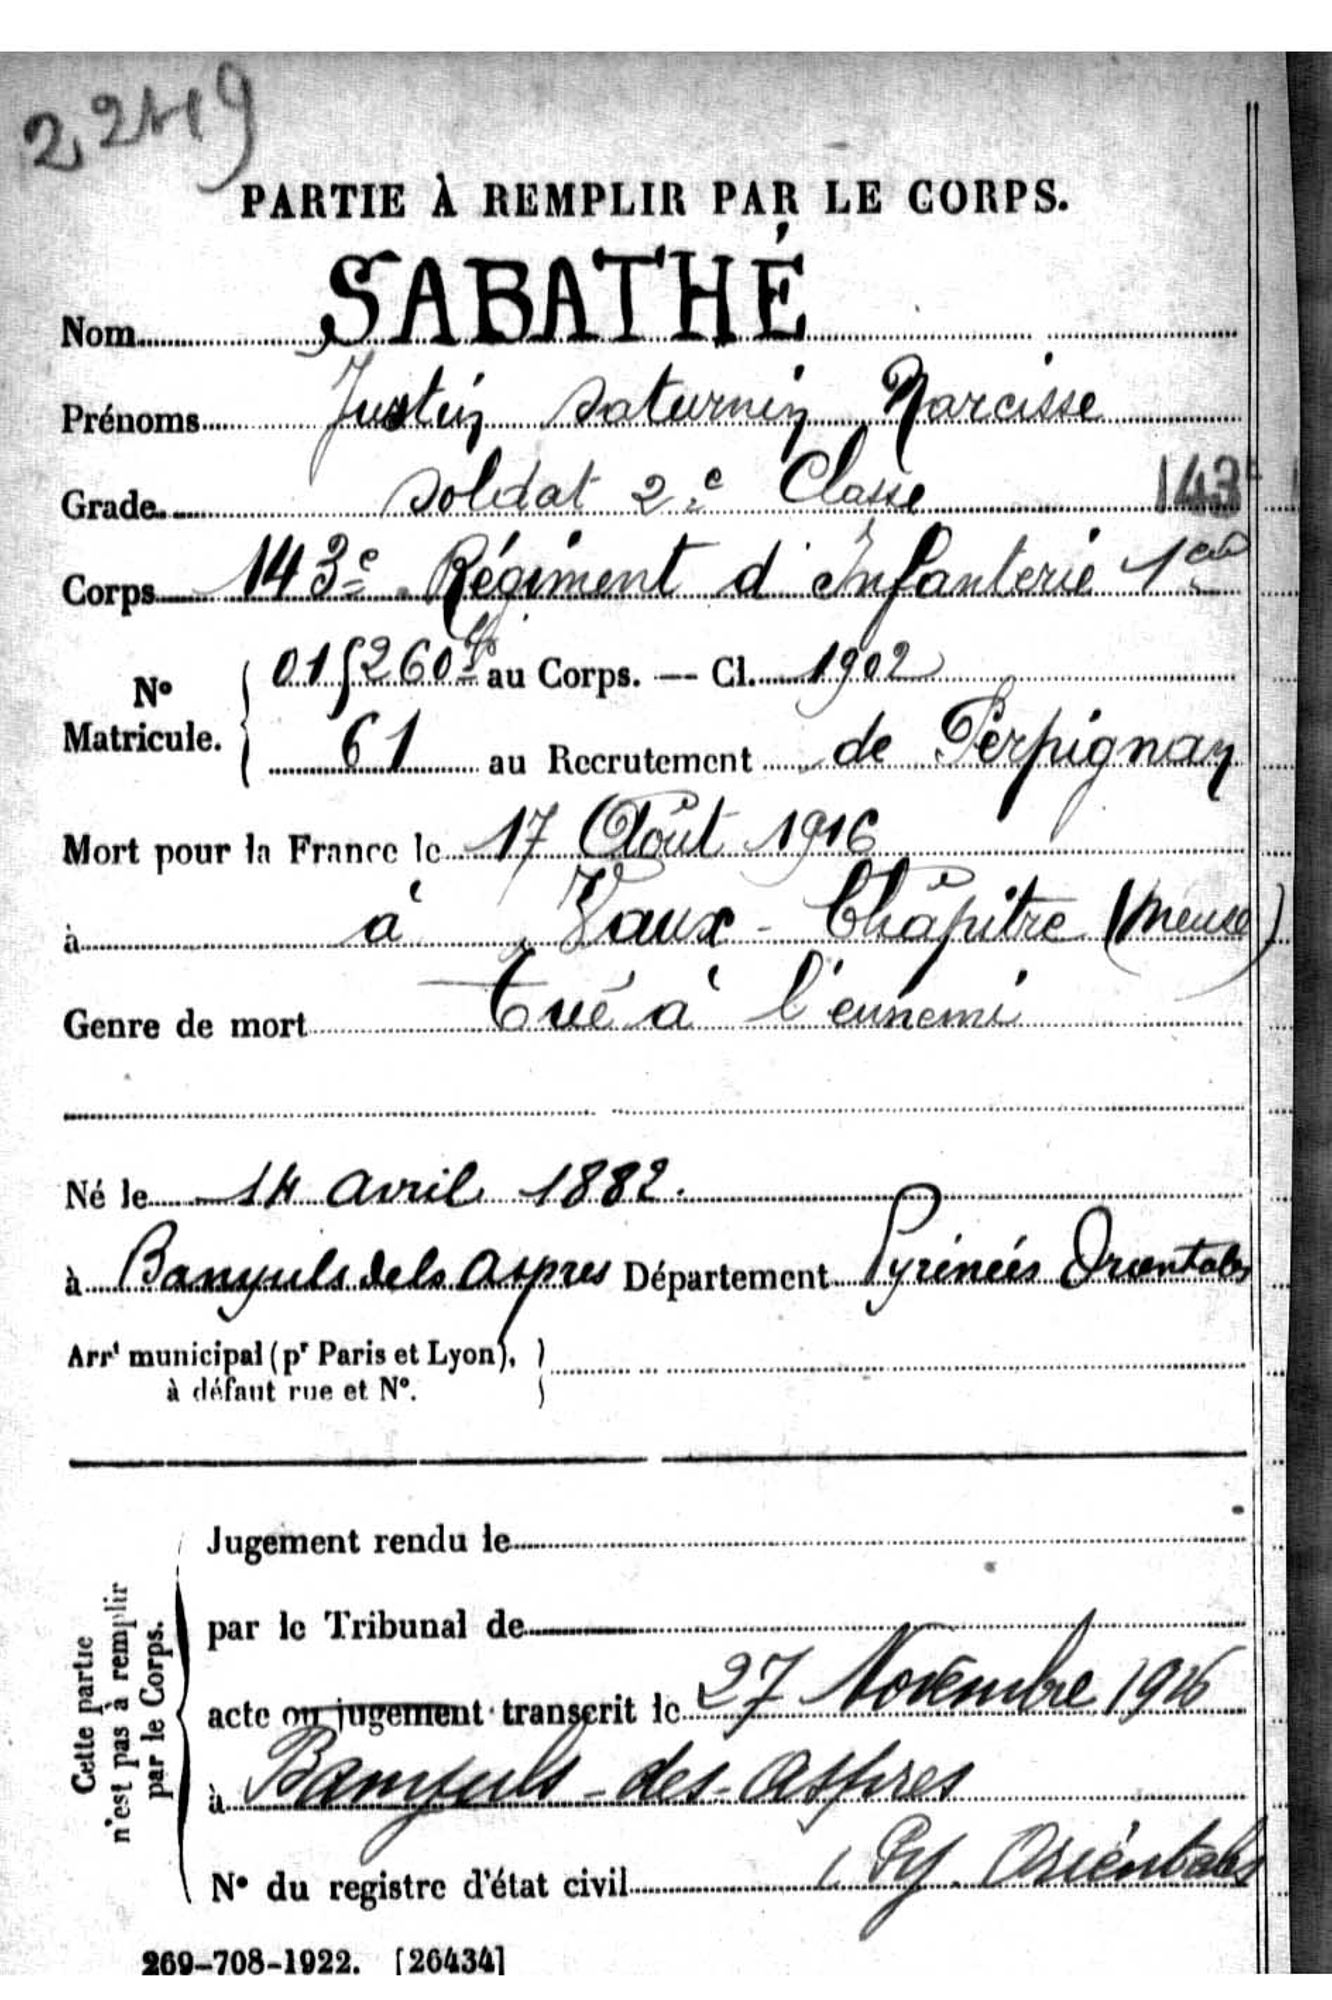 22419
PARTIE À REMPLIR PAR LE CORPS.
Nom SABATHÉ
Prénoms Justin Saturnin Narcisse
Grade soldat 2e Classe 143e
Corps 143e Régiment d'Infanterie 1e cie
No Matricule. { 01 260 au Corps. — Cl. 1902
61 au Recrutement de Perpignan
Mort pour la France le 17 Août 1916
à à Vaux-Chapître (Meuse)
Genre de mort Tué à l'ennemi
Né le 14 avril 1882.
à Banyuls dels aspres Département Pyrénées Orientales
Arrt municipal (pr Paris et Lyon), }
à défaut rue et No.
Cette partie n'est pas à remplir par le Corps.
Jugement rendu le
par le Tribunal de
acte ou jugement transcrit le 27 Novembre 1916
à Banyuls-des-Aspres
No du registre d'état civil (Py. Orientales
269-708-1922. [26434]